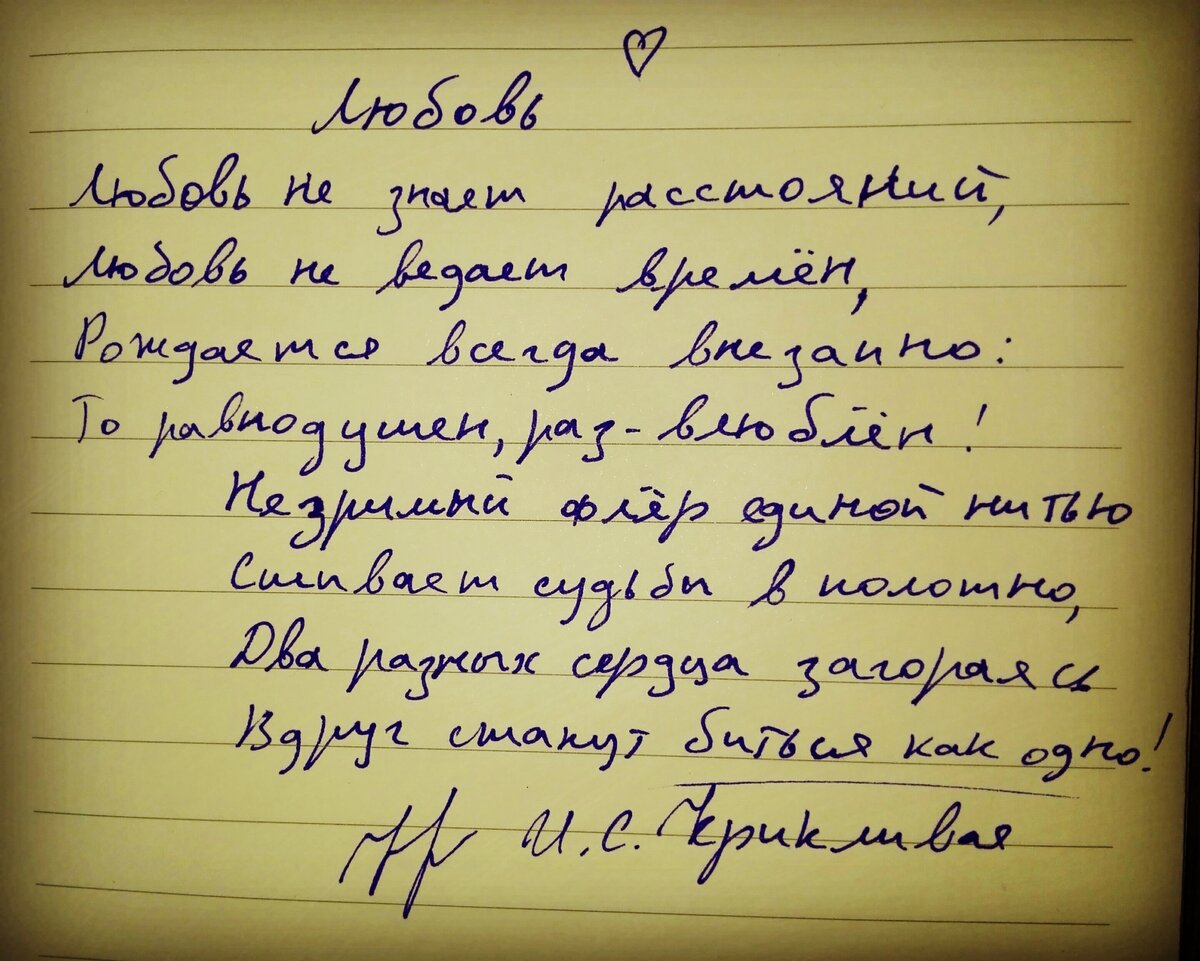 Любовь
Любовь не знает расстояний,
Любовь не ведает времён,
Рождается всегда внезапно:
То равнодушен, раз-влюблён!
Незримый флёр единой нитью
Сшивает судьбы в полотно,
Два разных сердца загораясь
Вдруг станут биться как одно!
И.С. Крикливая